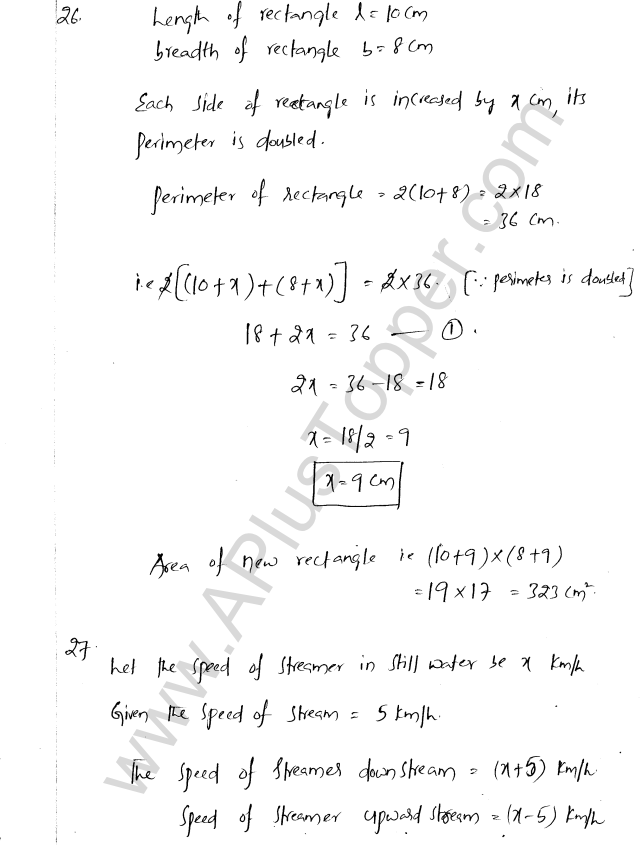 26. Length of rectangle l = 10 cm
breadth of rectangle b = 8 cm
Each side of rectangle is increased by x cm, its
perimeter is doubled.
Perimeter of rectangle = 2(10+8) = 2×18
= 36 cm.
i.e 2[(10+x)+(8+x)] = 2×36. [∵ perimeter is doubled]
18 + 2x = 36 — ①.
2x = 36-18 = 18
x = 18/2 = 9
x = 9 cm
Area of new rectangle ie (10+9)×(8+9)
= 19 × 17 = 323 cm².
27. Let the speed of streamer in still water be x km/h
Given the speed of stream = 5 km/h.
The speed of streamer down stream = (x+5) km/h
Speed of streamer upward stream = (x-5) km/h
www.APlusTopper.com